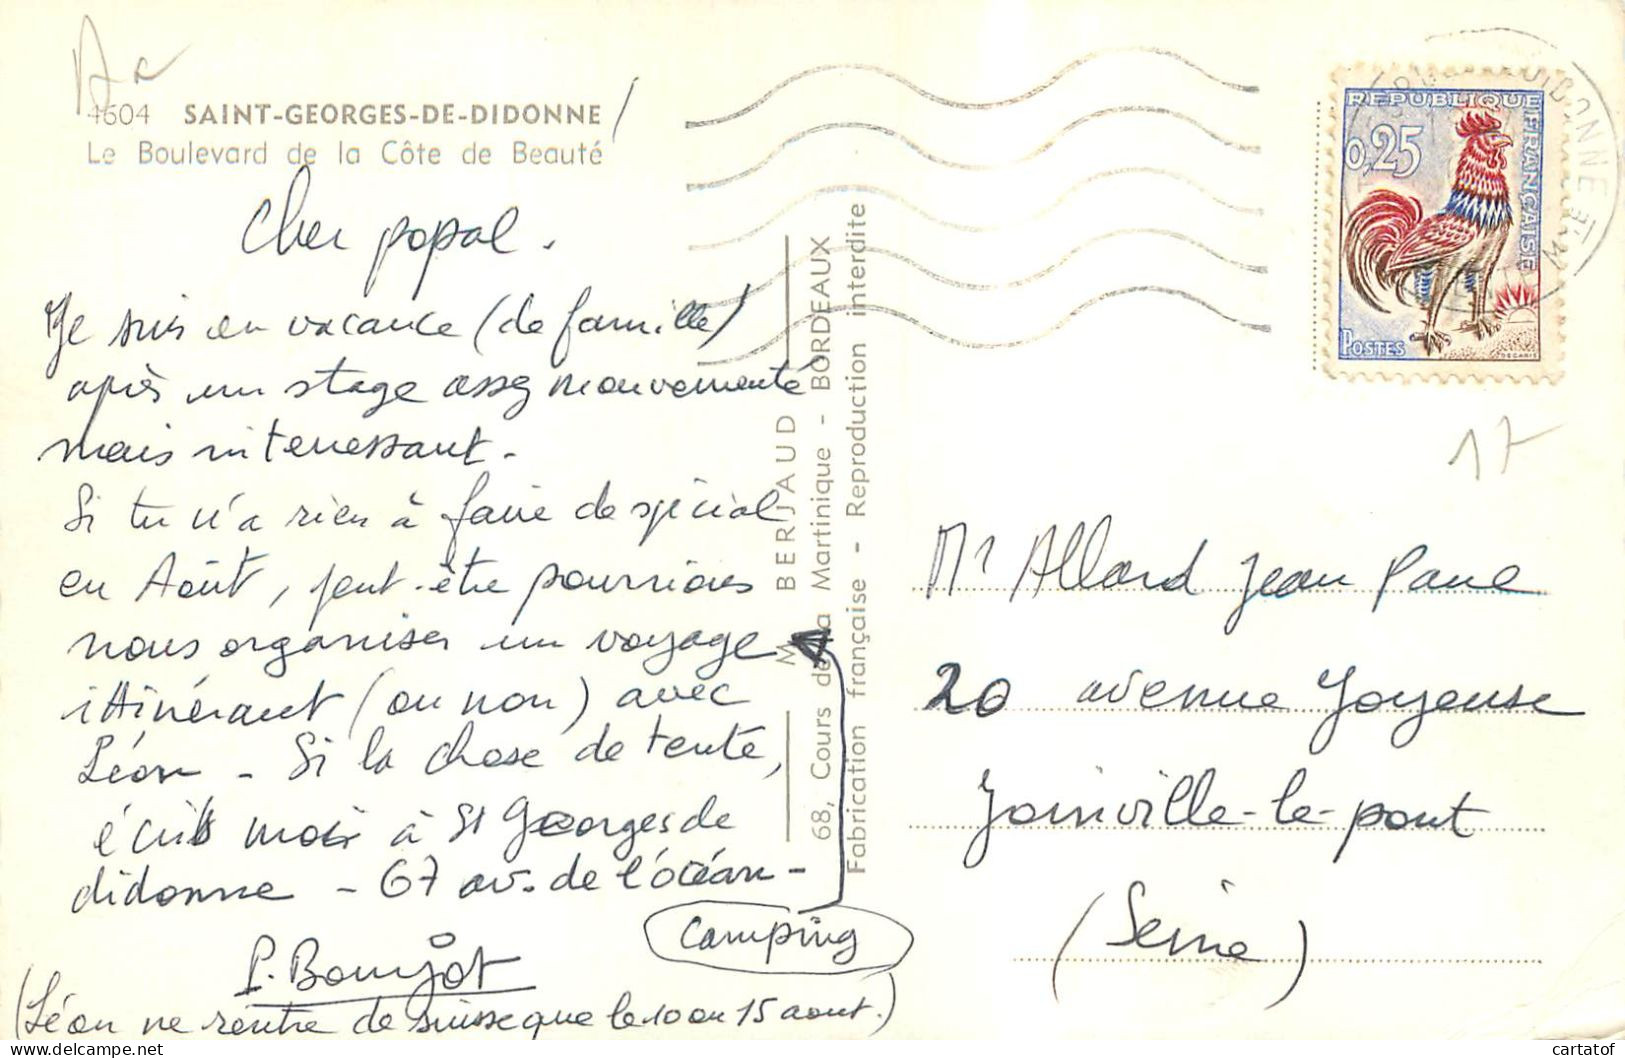 4604 SAINT-GEORGES-DE-DIDONNE
Le Boulevard de la Côte de Beauté
Cher popol.
Je suis en vacance (de famille)
après un stage assez mouvementé
mais interressant.
Si tu n'a rien à faire de spécial
en Août, peut-être pourrions
nous organiser un voyage
ittinérant (ou non) avec
Léon - Si la chose de tente,
écrits moi à St Georges de
didonne - 67 av. de l'océan -
camping
P. Boujot
(Léon ne rentre de suisse que le 10 ou 15 aout.)
M BERJAUD
68, Cours de la Martinique - BORDEAUX
Fabrication française - Reproduction interdite
REPUBLIQUE FRANÇAISE
0,25
POSTES
DECARIS
DIDONNE
17
Mr Allard Jean Paul
20 avenue Joyeuse
Joinville-le-pont
(Seine)
cartatof